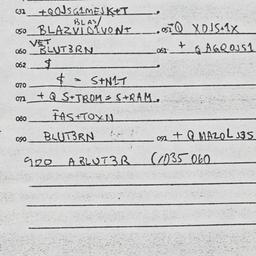 031 +QOJSG1MEJK+T
BLAS/
050 BLAZVI VONT . 051 Q XOJS+1X
VET
060 BLUT3RN 061 + Q AGROJS1
062 $
070 $ - S+N1T
071 + Q S+TROM = S+RAM.
080 FAS+TOXN
090 BLUT3RN 091 + Q MAZOL
920 ABLUT3R (/035 060